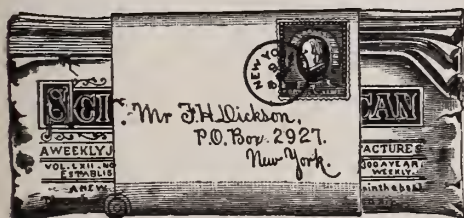 NEW YO
SCI
CAN
Mr F.H. Dickson,
P.O. Box 2927.
New York.
A WEEKLY J
ACTURES
VOL. LXII.
ESTABLIS
WEEKLY.
A NEW